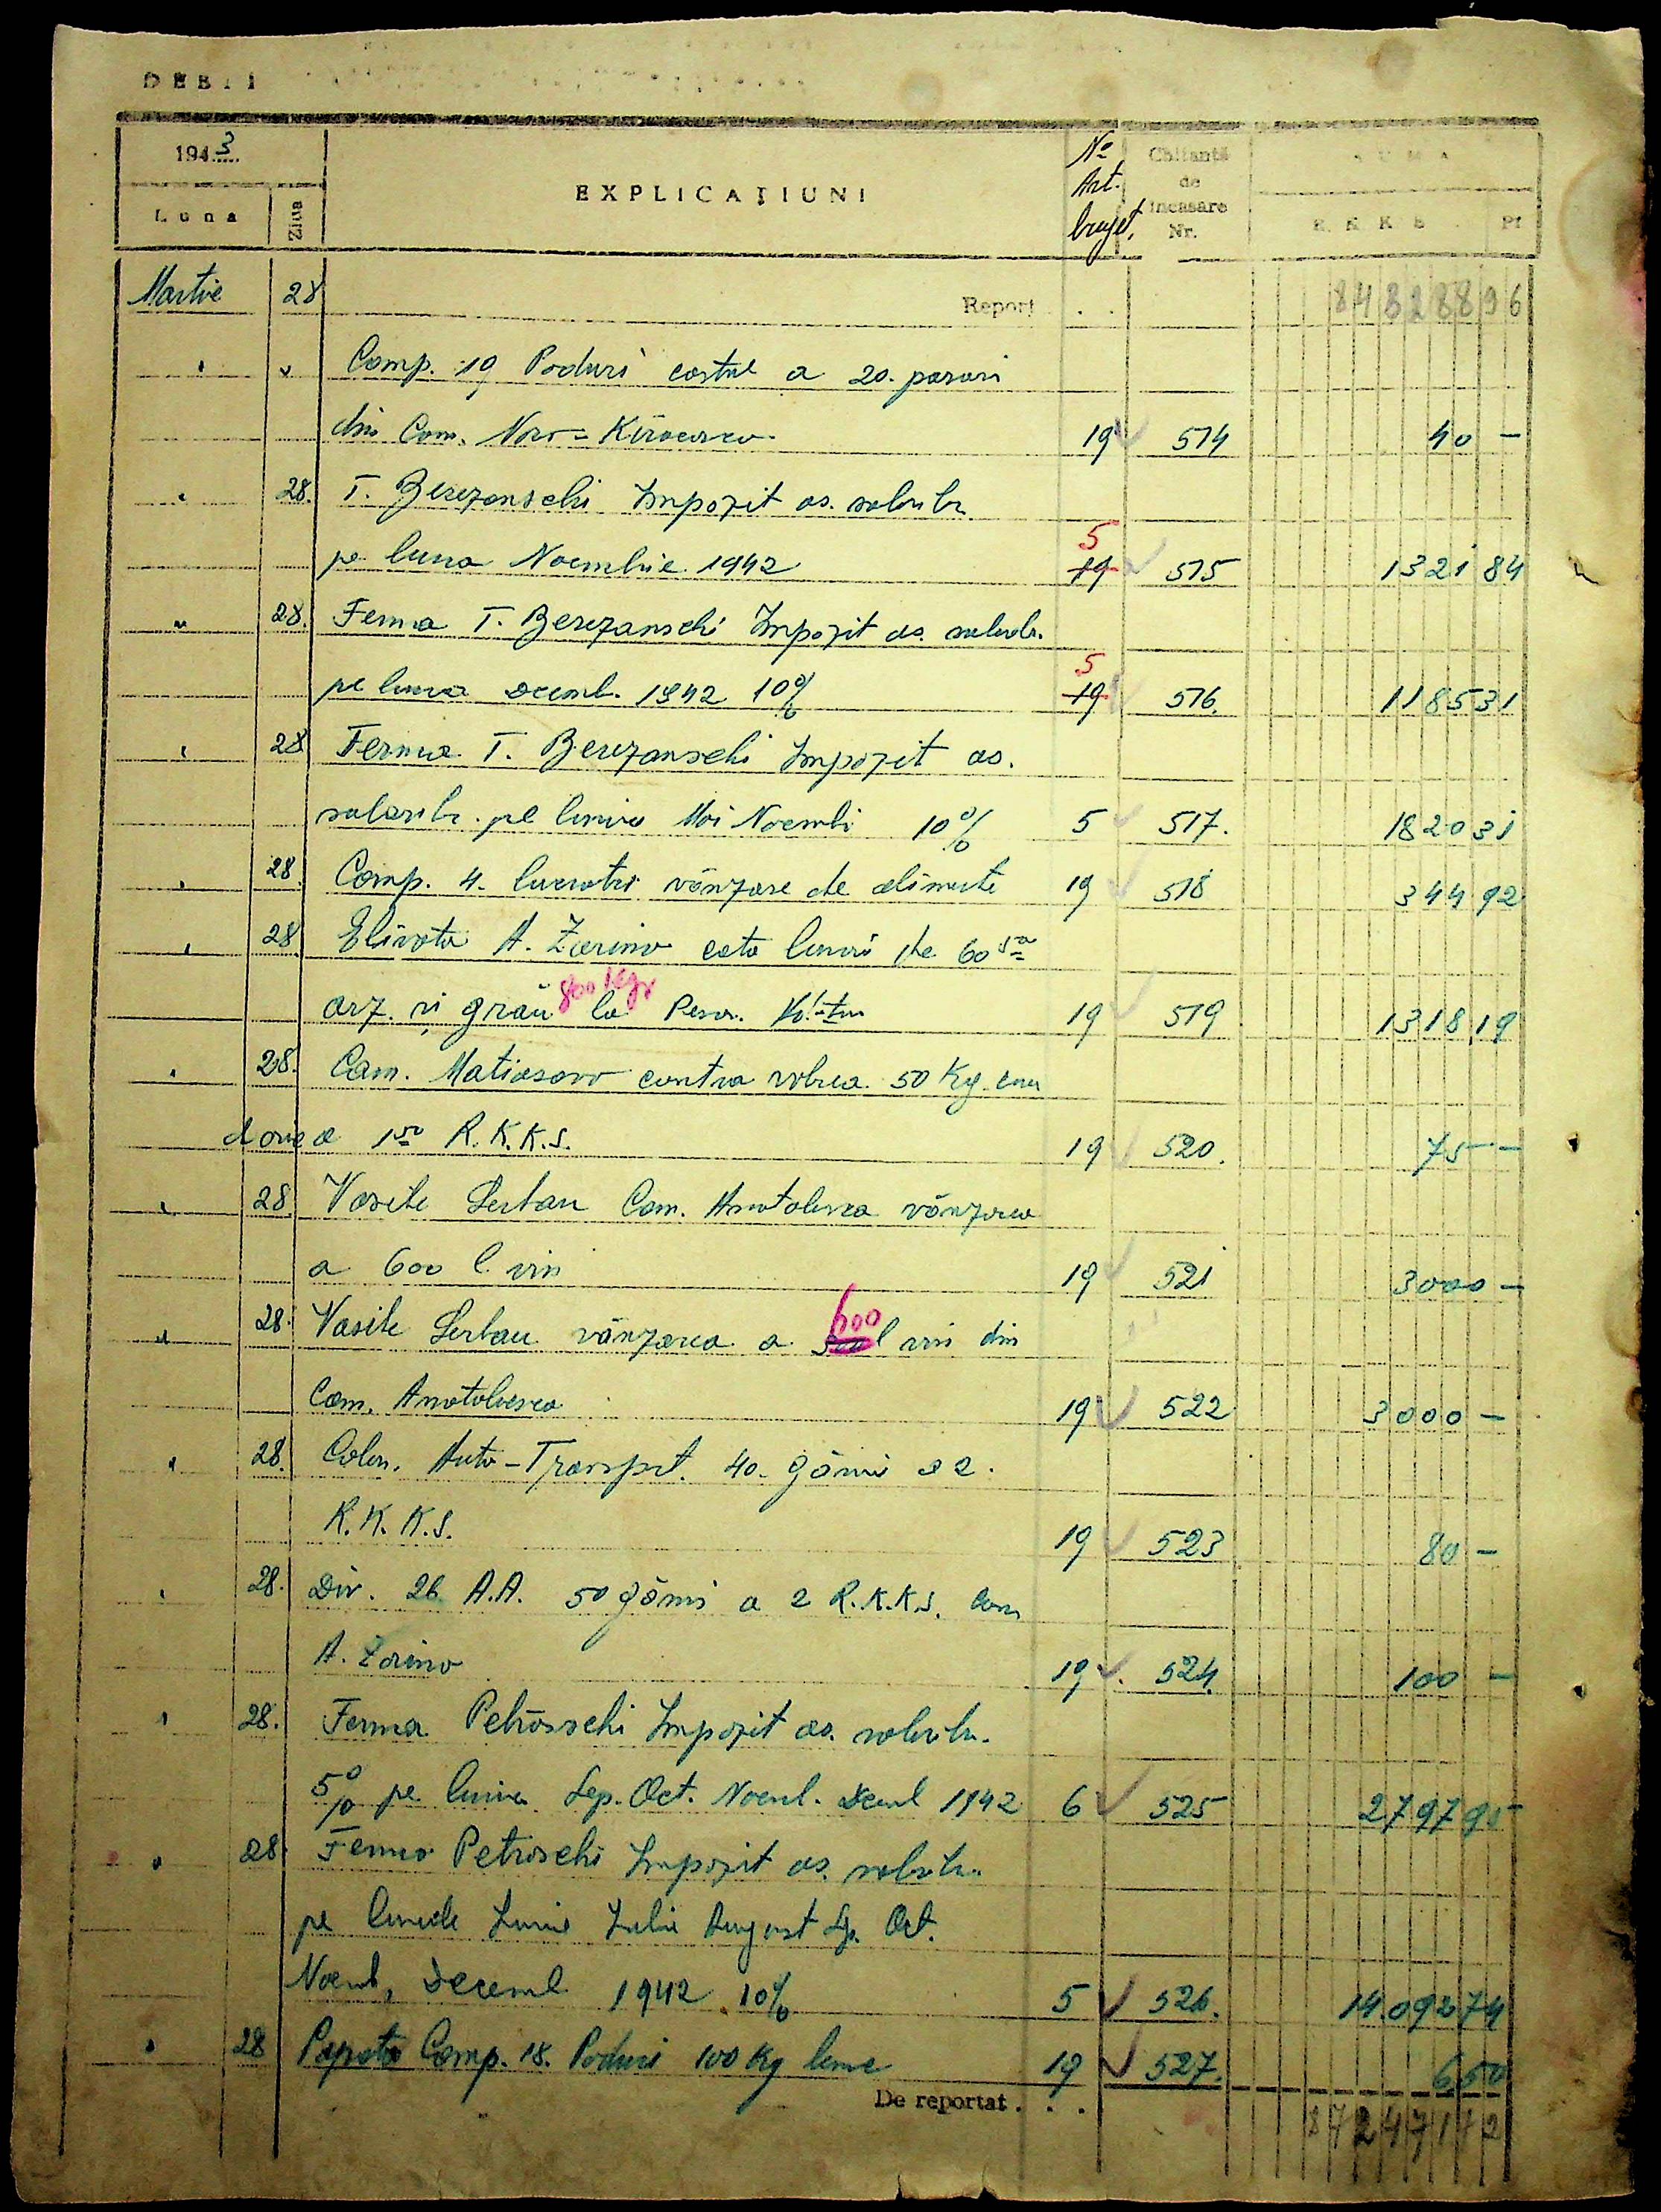 DEBIT
1943
Luna
Ziua
EXPLICAŢIUNI
No Art. buget.
Chitanţă de încasare Nr.
SUMA
R.K.K.S. Pf
Martie 28 Report . . 843288 96
" " Comp. 19 Poduri costul a 20. parari
din Com. Novo- 19 514 40 -
" 28. T. Berezanschi Impozit as. salarilr.
pe luna Noembrie 1942 5 19 515 1321 84
" 28. Ferma T. Berezanschi Impozit as. salarilr.
pe luna Decemb. 1942 10% 5 19 516. 1185 31
" 28 Ferma T. Berezanschi Impozit as.
salarilr. pe luniu Mai Noembi 10% 5 517. 1820 31
" 28. Comp. 4. lucrători vânzare de alimente 19 518 344 92
" 28 A. Zarino cota luni de 60
orz. și grâu 800 Kgr la 19 519 1318 19
" 28. Com. Matiasovo contra 50 Kg.
a 1 50 R.K.K.S. 19 520. 75 -
" 28. Vasile Serban Com. Anatolievca vânzarea
a 600 l. vin 19 521 3000 -
" 28. Vasile Serban vânzarea a 600 l vin din
Com. Anatolievca 19 522 3000 -
" 28. Colon. Auto-Transport. 40. găini a 2.
R.K.K.S. 19 523 80 -
" 28. Div. 26. A.A. 50 găini a 2 R.K.K.S. Com
A. Zorino 19 . 524. 100 -
" 28. Ferma Petrovschi Impozit as. salarilr.
5% pe luniu Sep. Oct. Noemb. Decemb 1942 6 525 2797 95
" 28. Ferma Petrovschi Impozit as. salarilr.
pe lunile Iunie Iulie August Sp. Oct.
Noemb, Decemb 1942 10% 5 526. 14.092 74
" 28 Popota Comp. 18. Poduri 100 Kg lemne 19 527. 6 50
De reportat . . . 872471 72